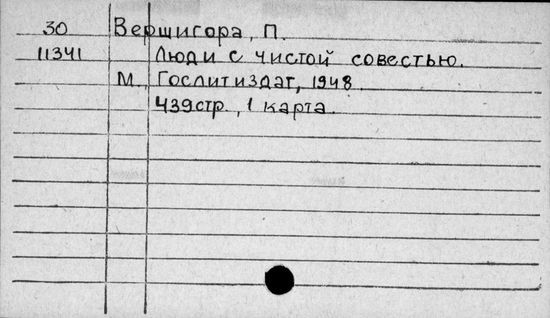 30 Вершигора, П.
11341 Люди с чистой совестью.
М. Гослитиздат, 1948.
439стр., 1 карта.